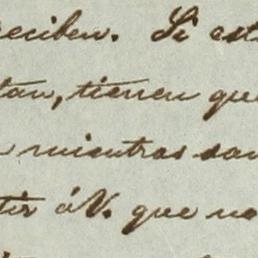 reciben. Si est
tan, tienen que
mientras san
tir á V. que no